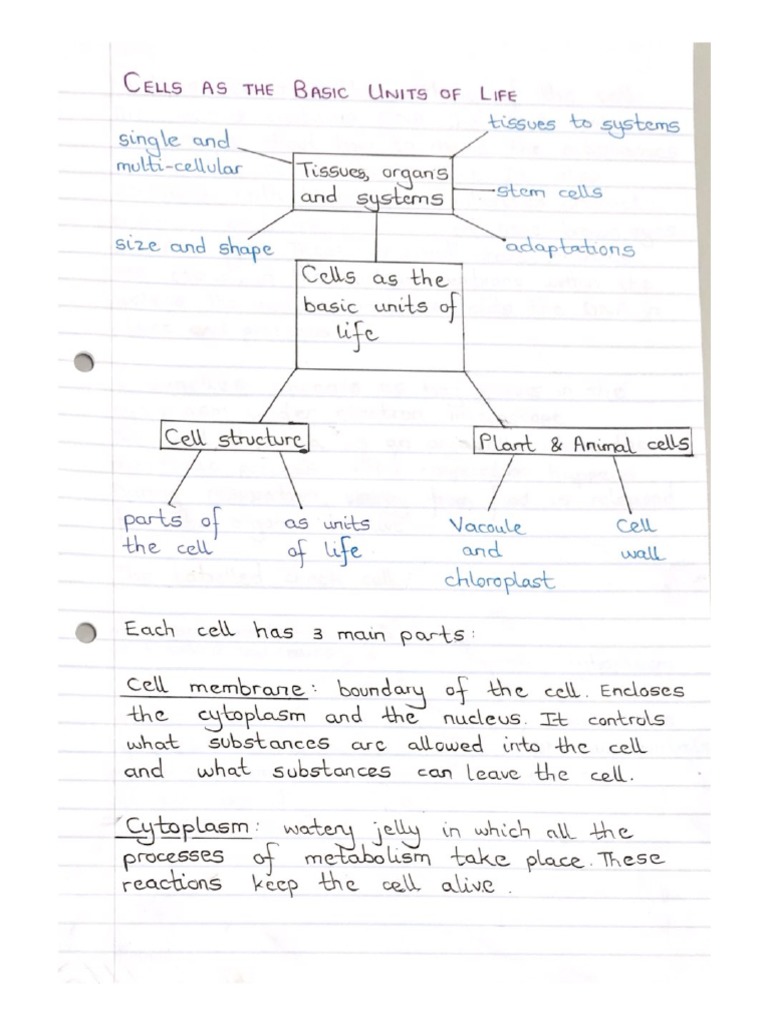 CELLS AS THE BASIC UNITS OF LIFE
tissues to systems
single and
multi-cellular
Tissues, organs
and systems
stem cells
size and shape
adaptations
Cells as the
basic units of
life
Cell structure
Plant & Animal cells
parts of
the cell
as units
of life
Vacoule
and
chloroplast
Cell
wall
Each cell has 3 main parts:
Cell membrane: boundary of the cell. Encloses
the cytoplasm and the nucleus. It controls
what substances are allowed into the cell
and what substances can leave the cell.
Cytoplasm: watery jelly in which all the
processes of metabolism take place. These
reactions keep the cell alive.